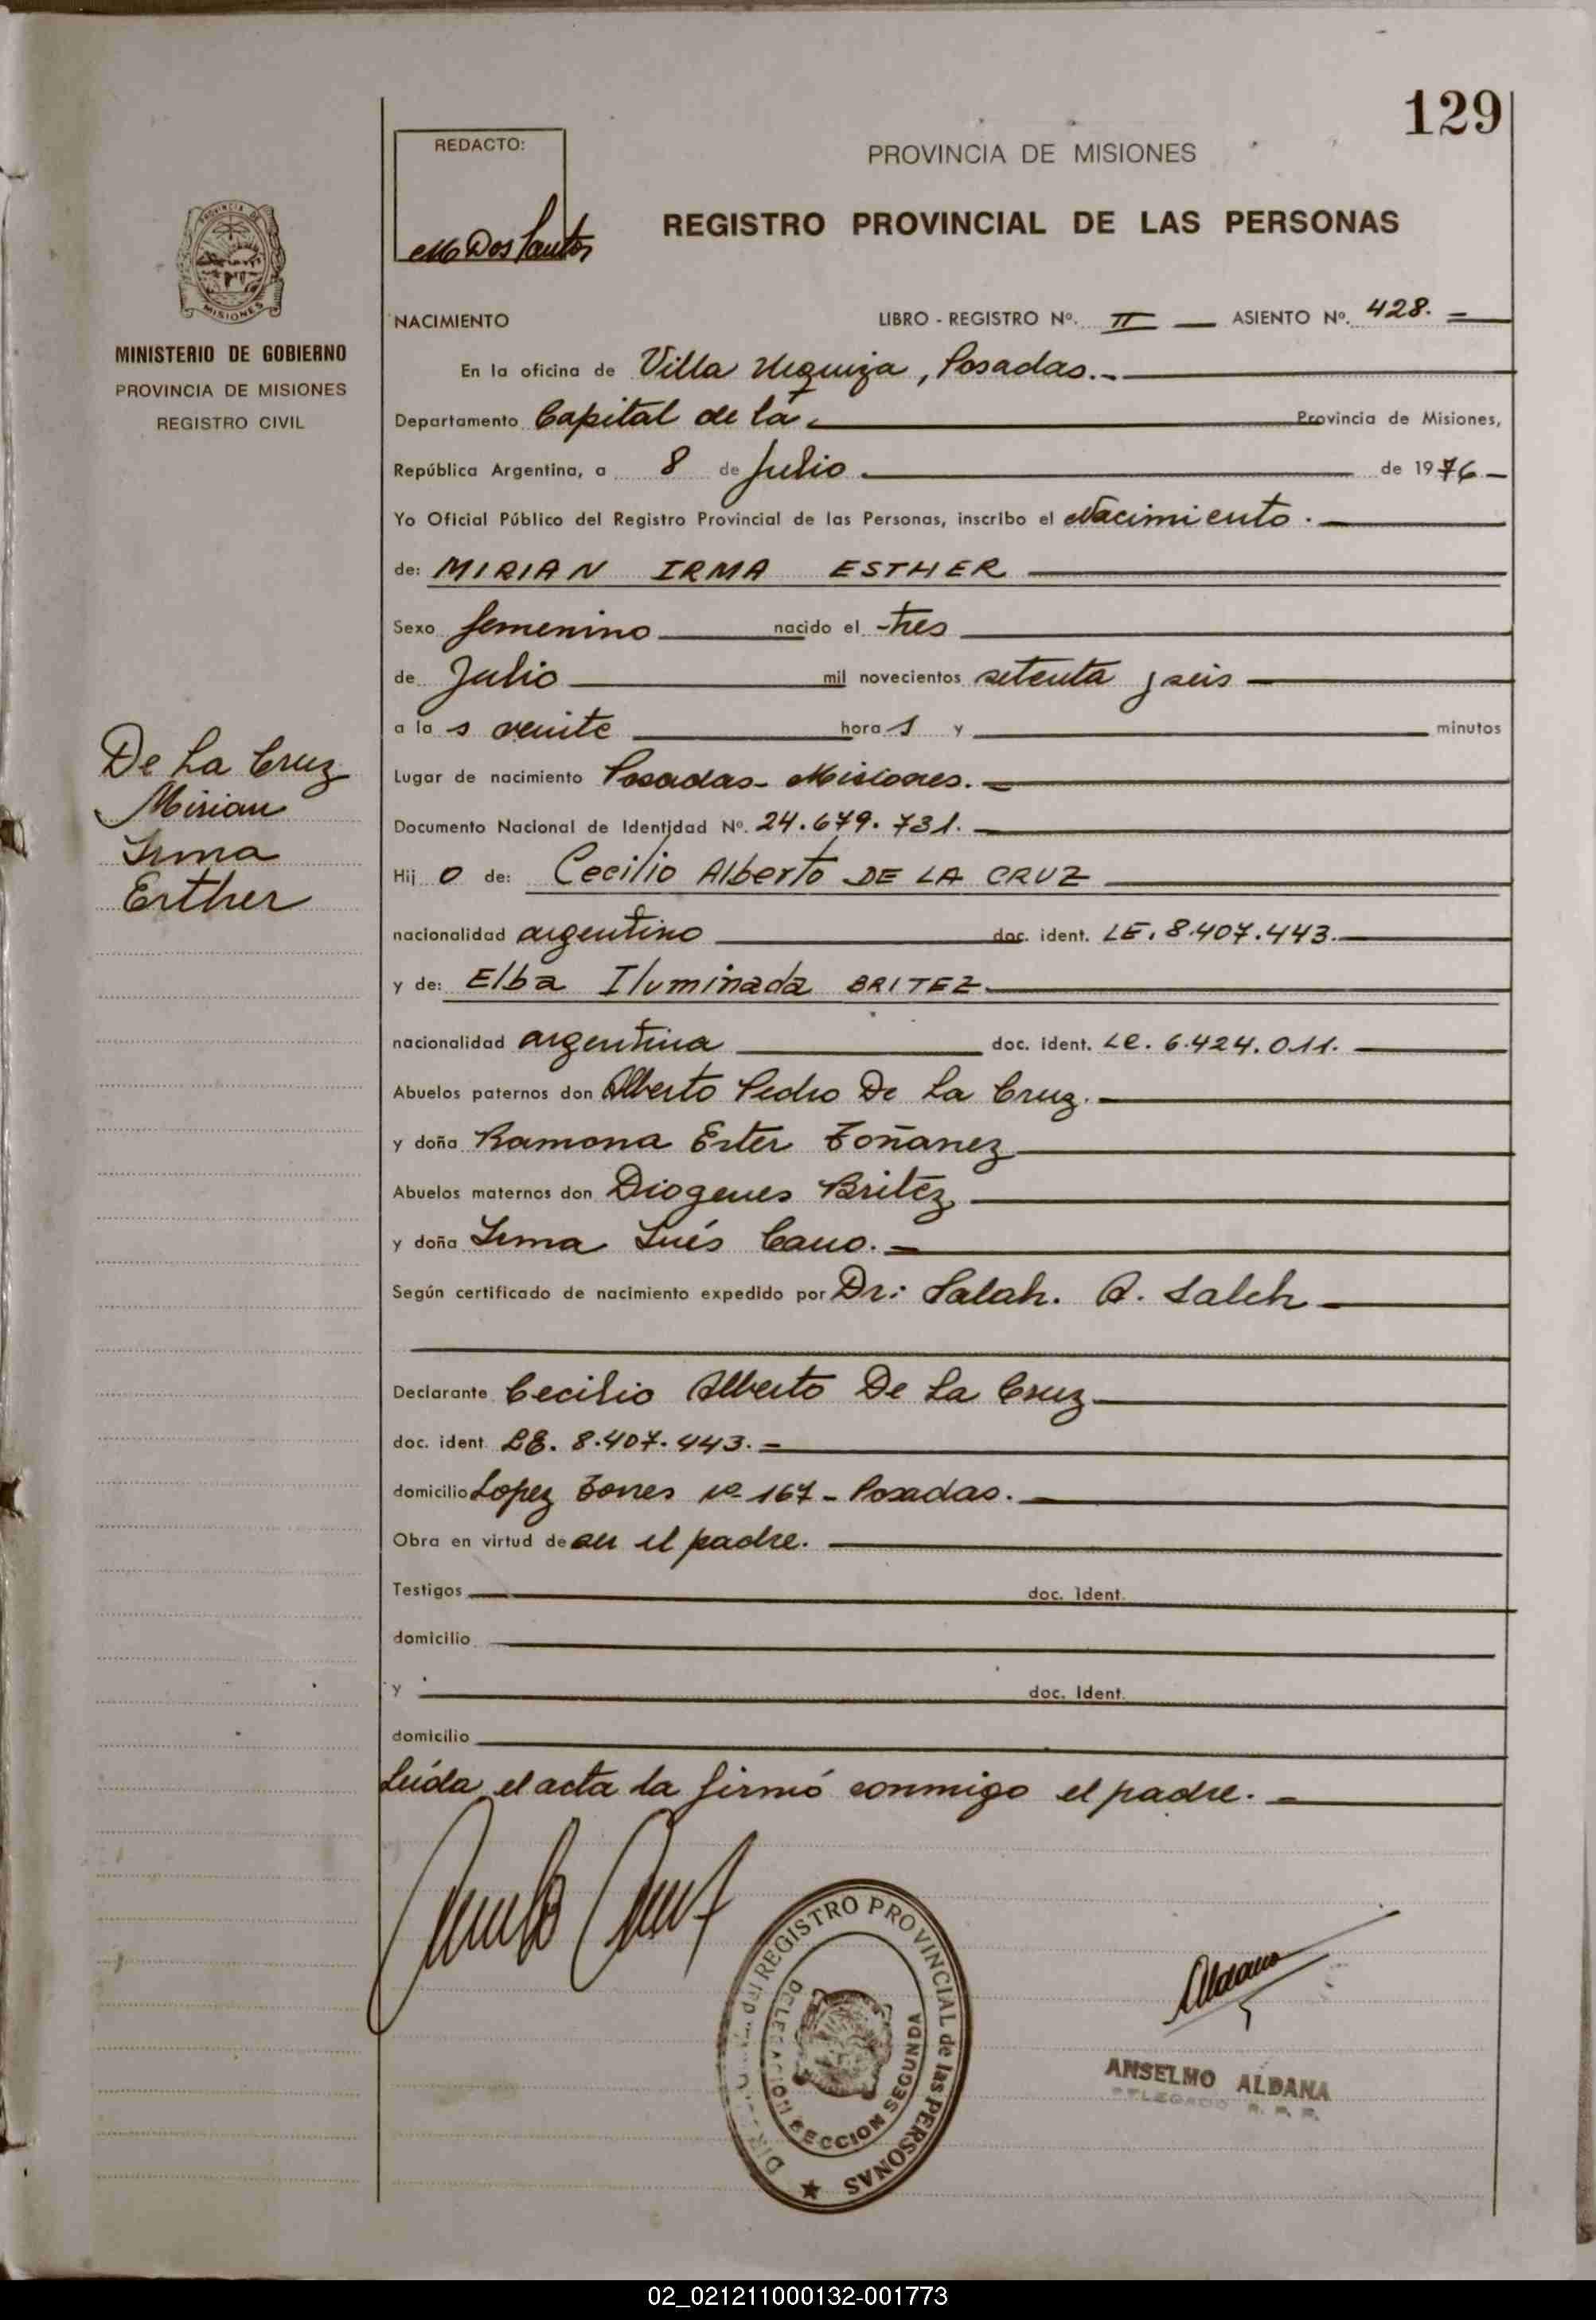 129
REDACTO:
M Dos Santos
PROVINCIA DE MISIONES
REGISTRO PROVINCIAL DE LAS PERSONAS
PROVINCIA DE
MISIONES
MINISTERIO DE GOBIERNO
PROVINCIA DE MISIONES
REGISTRO CIVIL
De La Cruz
Mirian
Irma
Esther
NACIMIENTO LIBRO - REGISTRO Nº. II — ASIENTO Nº. 428. =
En la oficina de Villa Urquiza, Posadas.-
Departamento Capital de la Provincia de Misiones,
República Argentina, a 8 de Julio de 1976 -
Yo Oficial Público del Registro Provincial de las Personas, inscribo el Nacimiento.
de: MIRIAN IRMA ESTHER
Sexo femenino nacido el tres
de Julio mil novecientos setenta y seis
a la s veinte hora s y minutos
Lugar de nacimiento Posadas - Misiones.
Documento Nacional de Identidad Nº. 24.679.731.
Hij o de: Cecilio Alberto DE LA CRUZ
nacionalidad argentino doc. ident. LE. 8.407.443.
y de: Elba Iluminada BRITEZ
nacionalidad argentina doc. ident. LC. 6.424.011.
Abuelos paternos don Alberto Pedro De La Cruz.
y doña Ramona Ester Toñanez
Abuelos maternos don Diogenes Britez
y doña Irma Inés Cano.
Según certificado de nacimiento expedido por Dr: Salah. A. Saleh
Declarante Cecilio Alberto De La Cruz
doc. ident. LE. 8.407.443. =
domicilio Lopez Torres nº 167 - Posadas.
Obra en virtud de ser el padre.
Testigos doc. Ident.
domicilio
y doc. Ident.
domicilio
Leída el acta la firmó conmigo el padre.
REGISTRO PROVINCIAL de las PERSONAS
DELEGACION SECCION SEGUNDA
Aldana
ANSELMO ALDANA
DELEGADO R. P. P.
02_021211000132-001773